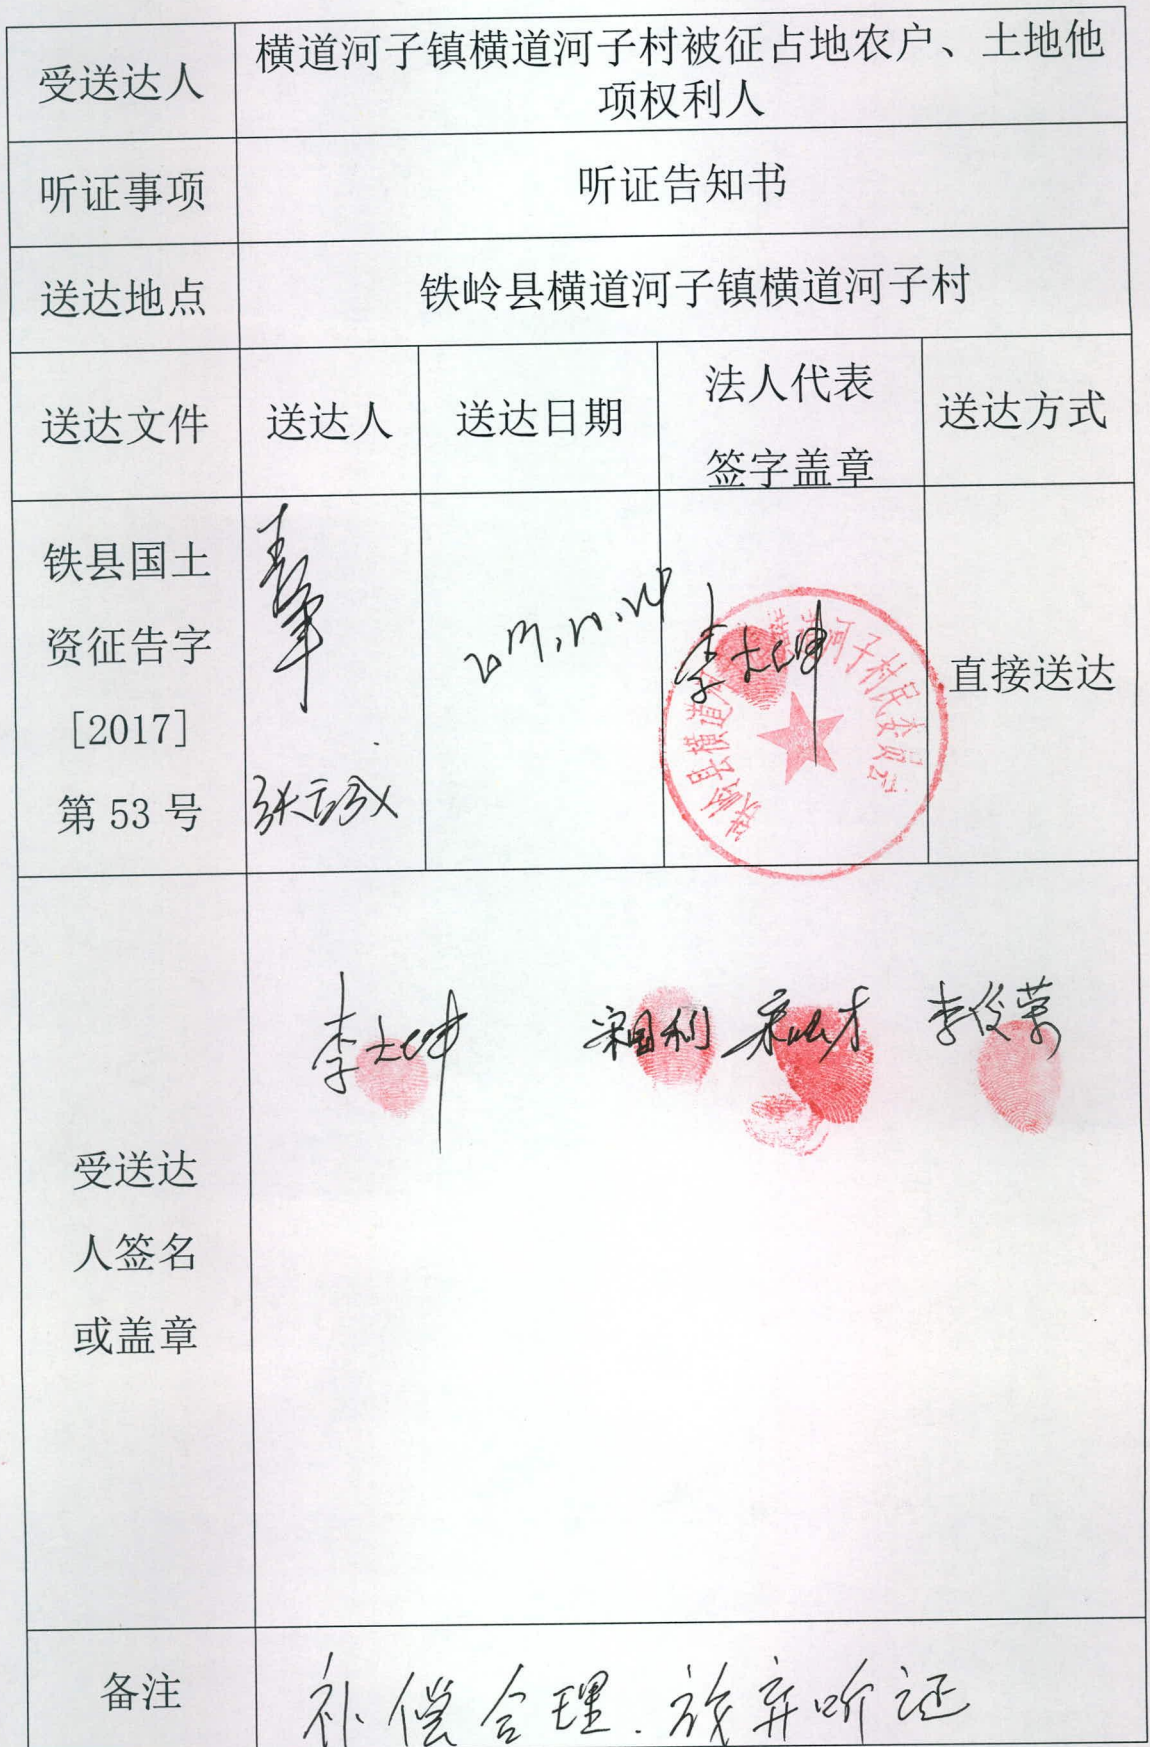 受送达人
横道河子镇横道河子村被征占地农户、土地他
项权利人
听证事项
听证告知书
送达地点
铁岭县横道河子镇横道河子村
送达文件
送达人
送达日期
法人代表
签字盖章
送达方式
铁县国土
资征告字
[2017]
第 53 号
2017.10.24
直接送达
受送达
人签名
或盖章
李俊荣
备注
补偿合理.放弃听证